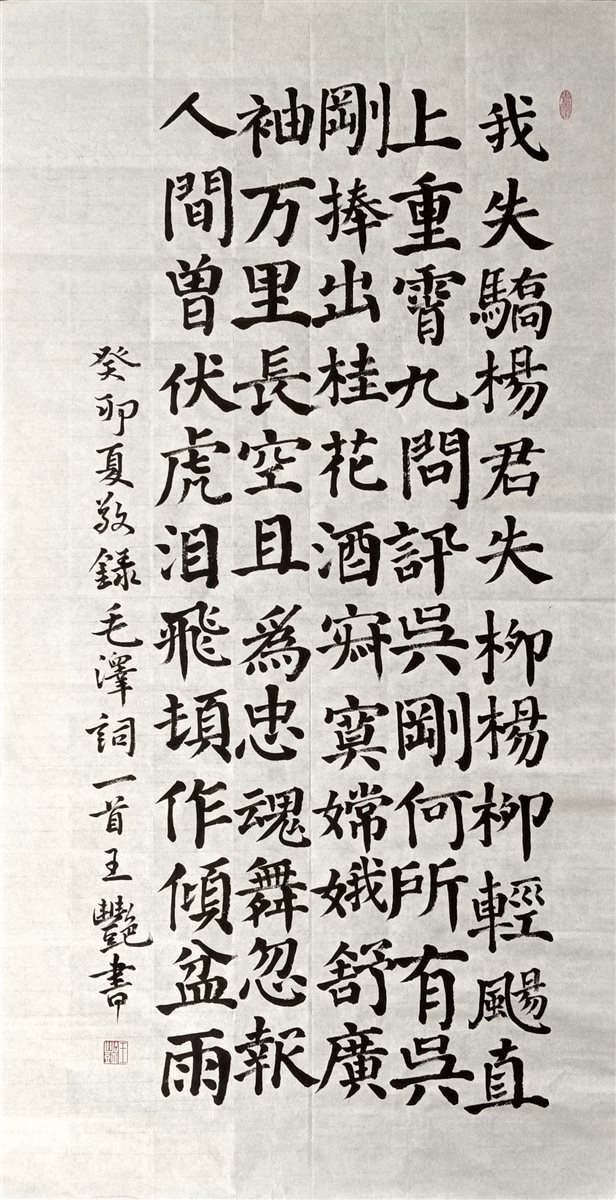 我失驕楊君失柳楊柳輕颺直
上重霄九問訊吳剛何所有吳
剛捧出桂花酒寂寞嫦娥舒廣
袖万里長空且為忠魂舞忽報
人間曾伏虎泪飛頓作傾盆雨
癸卯夏敬錄毛澤詞一首王艷書